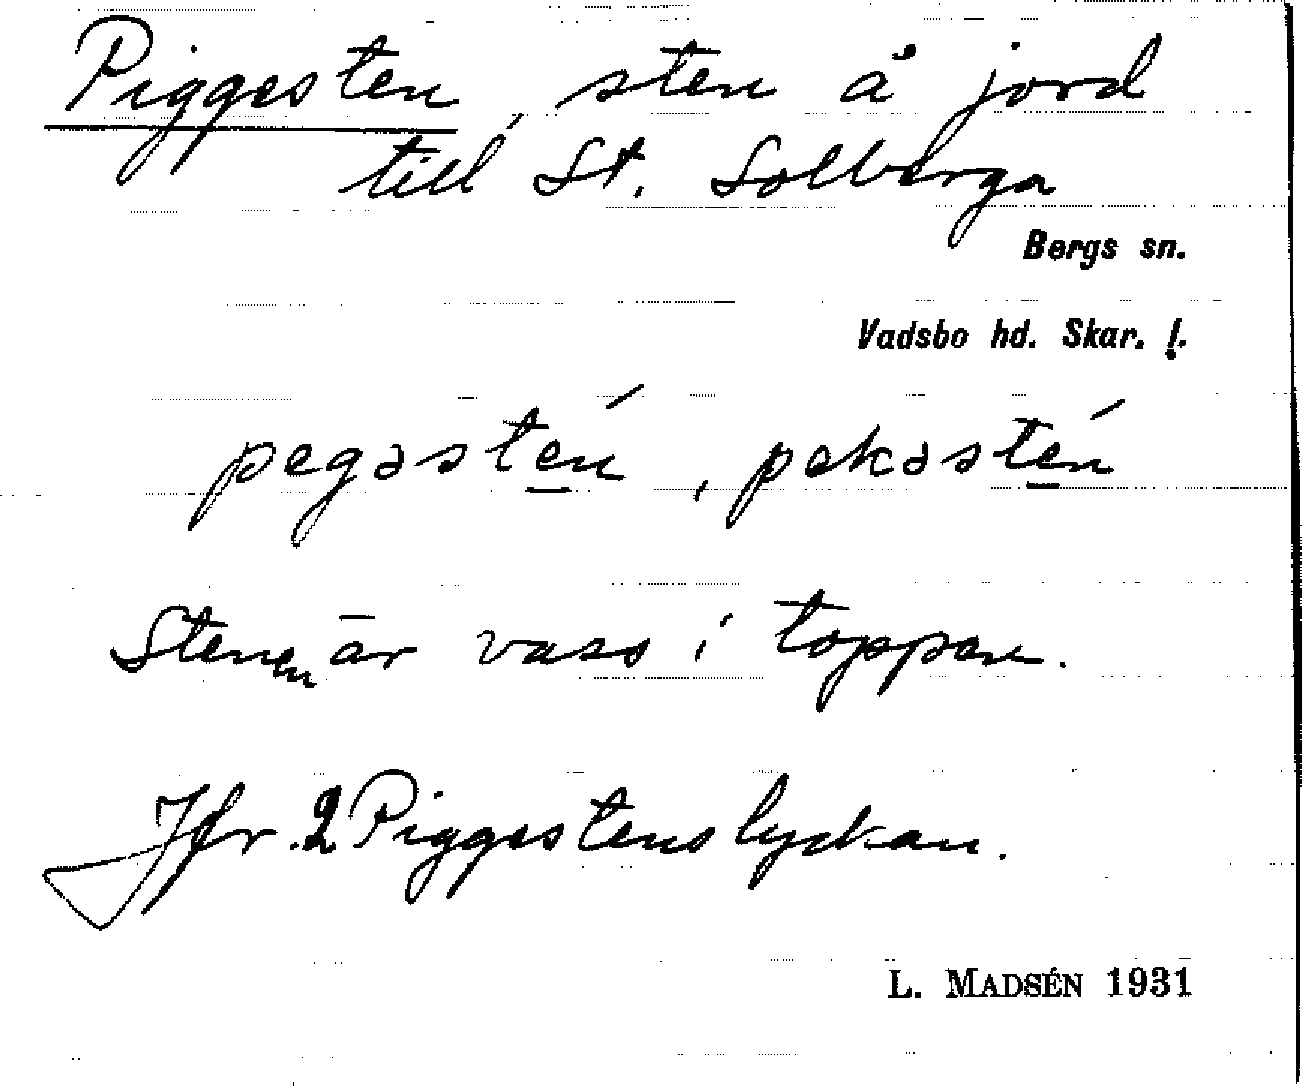 Piggesten, sten å jord
till St. Solberga
Bergs sn.
Vadsbo hd. Skar. l.
pegəsten, pekəsten
Stenen är vass i toppen.
Jfr. 2 Piggestenslyckan.
L. MADSÉN 1931